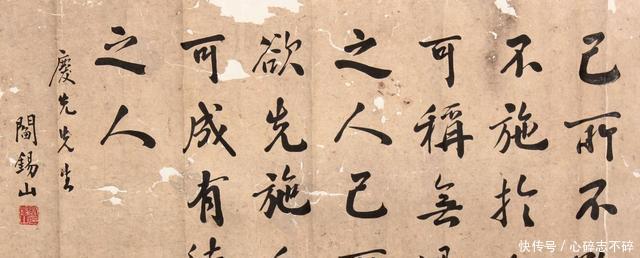 己所不
不施於
可稱無
之人己所
欲先施
可成有
之人
慶先先生
閻錫山
快传号 / 心碎志不碎